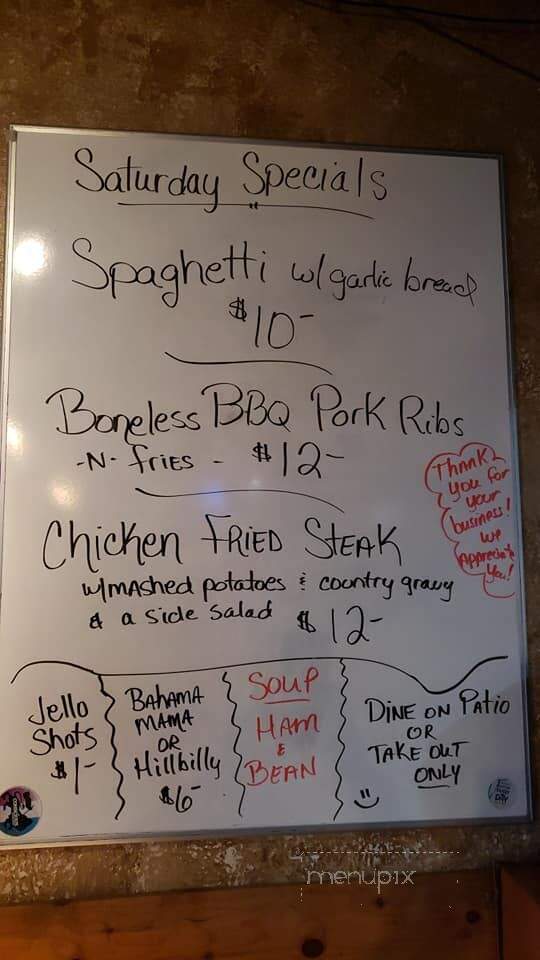 Saturday Specials
Spaghetti w/garlic bread
$10-
Boneless BBQ Pork Ribs
-N- fries - $12-
Chicken FRIED STEAK
w/mashed potatoes & country gravy
& a side salad $12-
Thank
you for
your
business!
we
Appreciate
you!
Jello
Shots
$1-
BAHAMA
MAMA
OR
Hillbilly
$6-
SOUP
HAM
&
BEAN
DINE ON PATIO
OR
TAKE OUT
ONLY
menupix